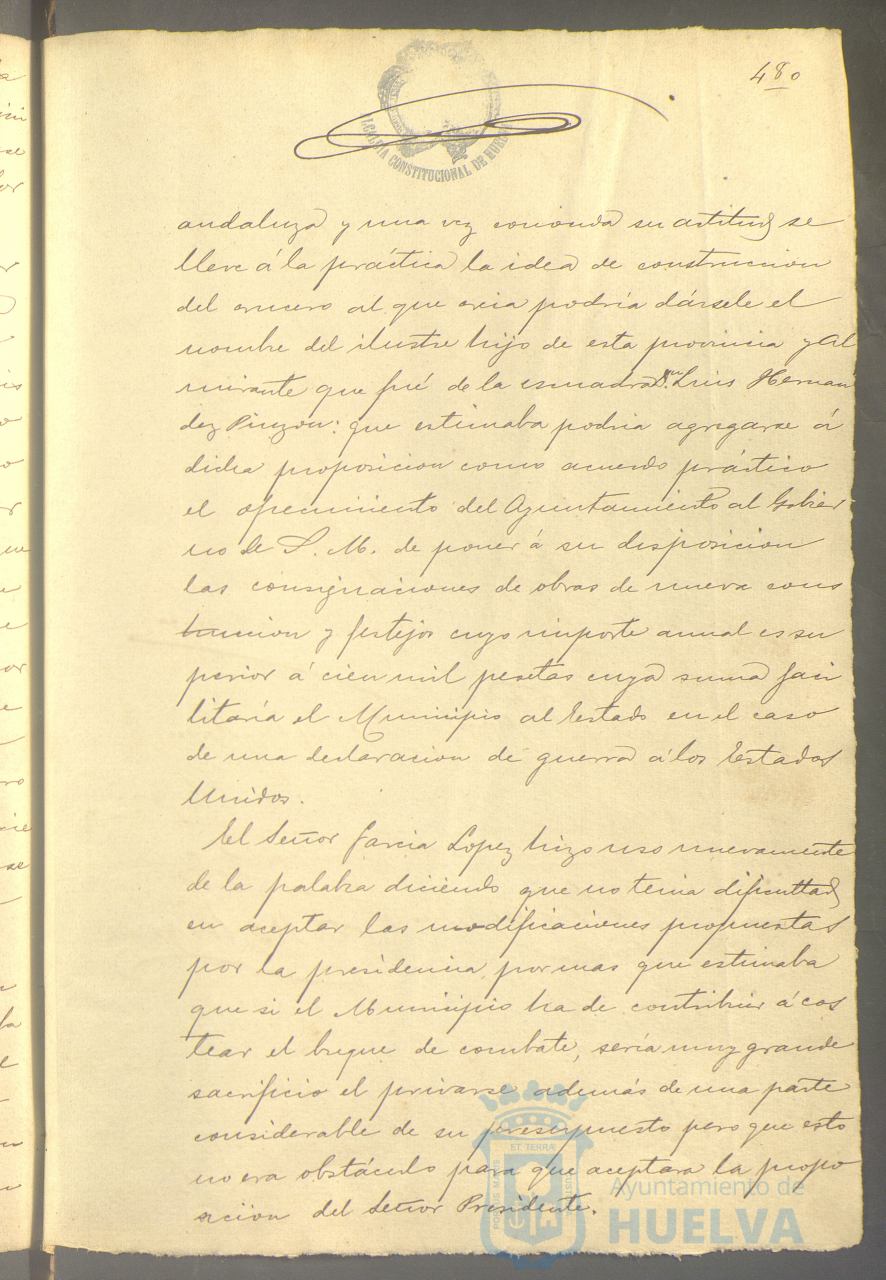 480
ALCALDIA CONSTITUCIONAL DE HUELVA
andaluza y una vez conocida su actitud se
lleve á la práctica la idea de construccion
del crucero al que creia podría dársele el
nombre del ilustre hijo de esta provincia y Al
mirante que fué de la esmadra Dn. Luis Hernan
dez Pinzon: que estimaba podria agregarse á
dicha proposicion como acuerdo práctico
el ofrecimiento del Ayuntamiento al Gobier
no de S. M. de poner á su disposicion
las consignaciones de obras de nueva cons
truccion y festejos cuyo importe anual es su
perior á cien mil pesetas cuya suma faci
litaría el Municipio al Estado en el caso
de una declaracion de guerra á los Estados
Unidos.
El Señor Garcia Lopez hizo uso nuevamente
de la palabra diciendo que no tenia dificultad
en aceptar las modificaciones propuestas
por la presidencia, por mas que estimaba
que si el Municipio ha de contribuir á cos
tear el buque de combate, sería muy grande
sacrificio el privarse además de una parte
considerable de su presupuesto pero que esto
no era obstáculo para que aceptara la propo
sicion del Señor Presidente.
PORTUS MARIS ET TERRÆ CUSTODIA
Ayuntamiento de
HUELVA